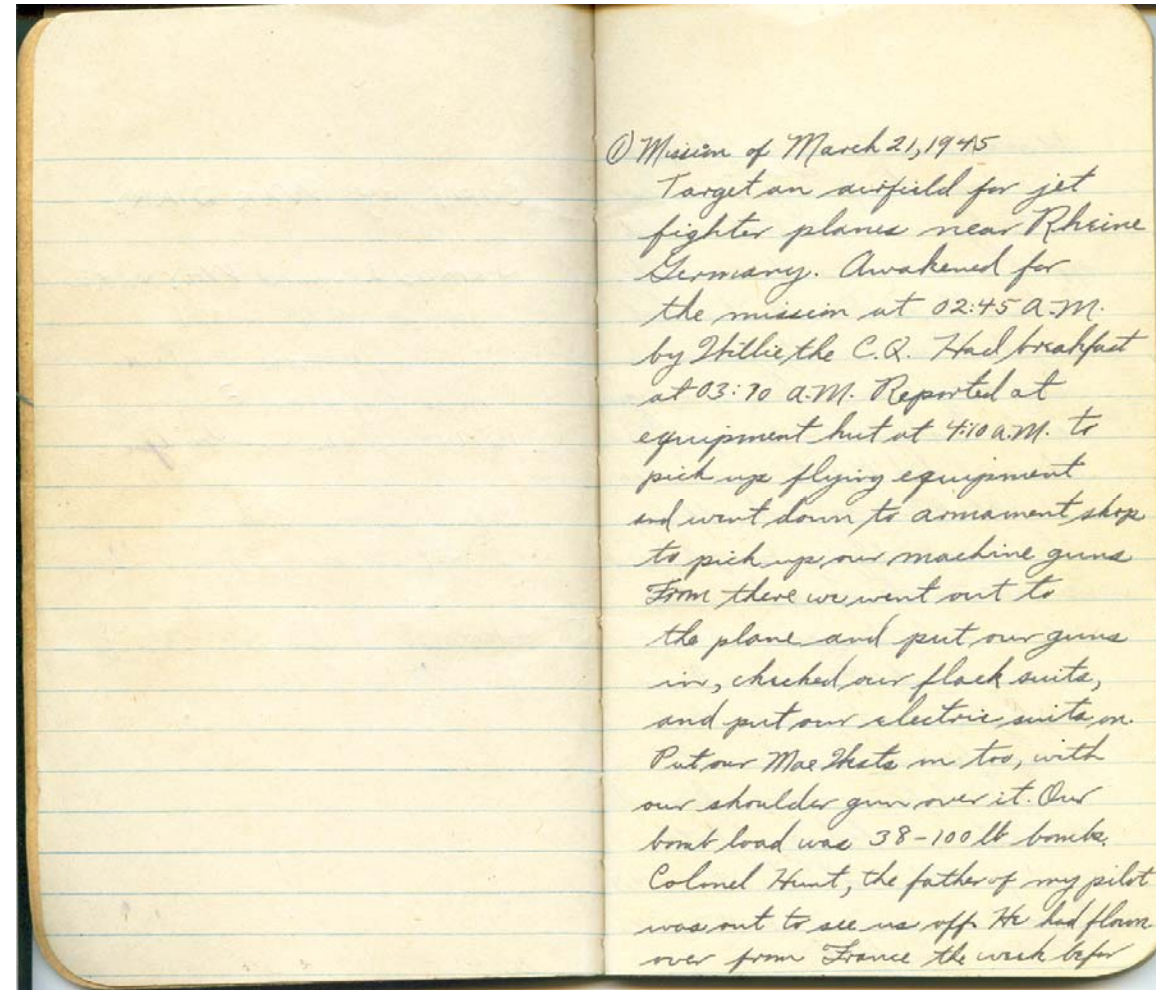 ① Mission of March 21, 1945
Target an airfield for jet
fighter planes near Rheine
Germany. Awakened for
the mission at 02:45 A.M.
by Willie, the C.Q. Had breakfast
at 03:10 A.M. Reported at
equipment hut at 4:10 A.M. to
pick up flying equipment
and went down to armament shop
to pick up our machine guns
From there we went out to
the plane and put our guns
in, checked our flack suits,
and put our electric suits on.
Put our Mae Wests on too, with
our shoulder gun over it. Our
bomb load was 38-100 lb bombs.
Colonel Hunt, the father of my pilot
was out to see us off. He had flown
over from France the week befor